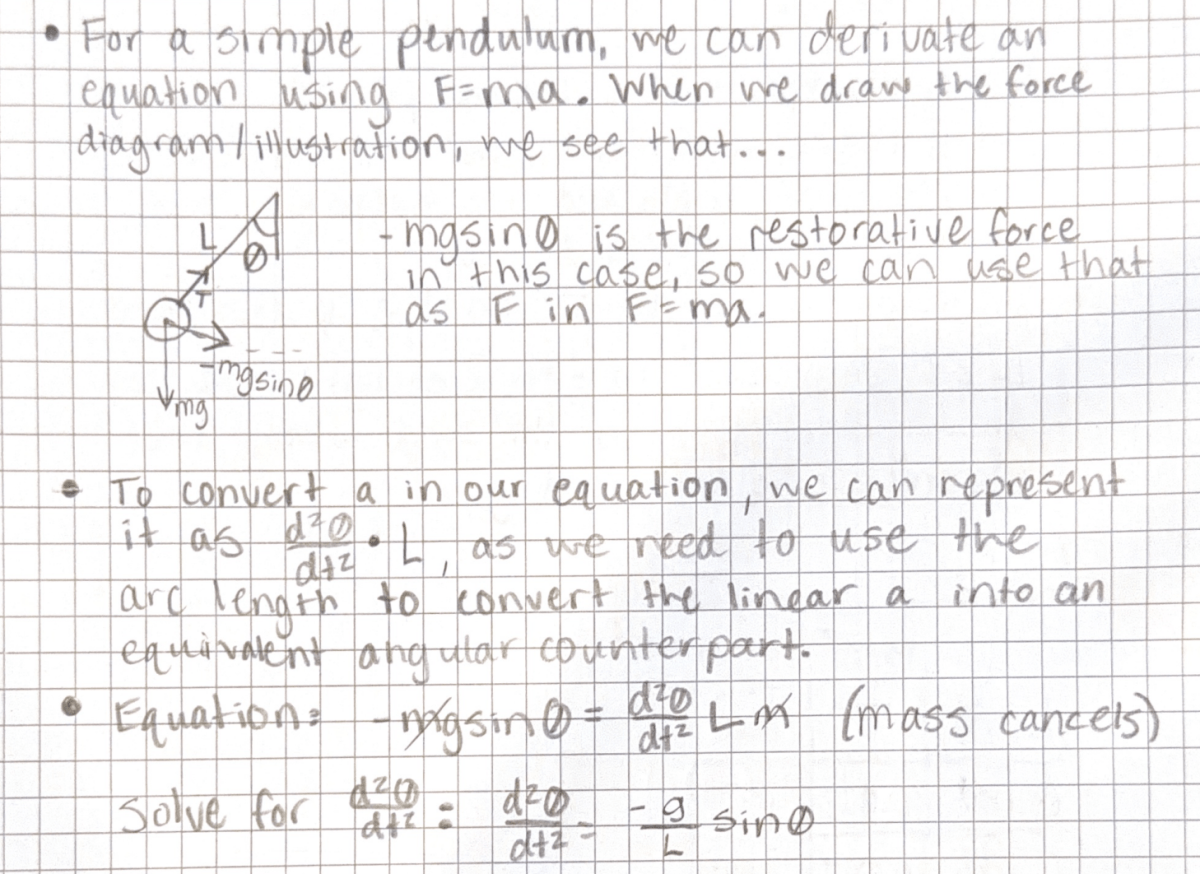 • For a simple pendulum, we can derivate an
equation using F=ma. When we draw the force
diagram/illustration, we see that...
L
θ
T
-mgsinθ
mg
-mgsinθ is the restorative force
in this case, so we can use that
as F in F=ma.
• To convert a in our equation, we can represent
it as d²θ/dt² • L, as we need to use the
arc length to convert the linear a into an
equivalent angular counterpart.
• Equation: -mgsinθ = d²θ/dt² L m (mass cancels)
Solve for d²θ/dt² : d²θ/dt² = -g/L sinθ